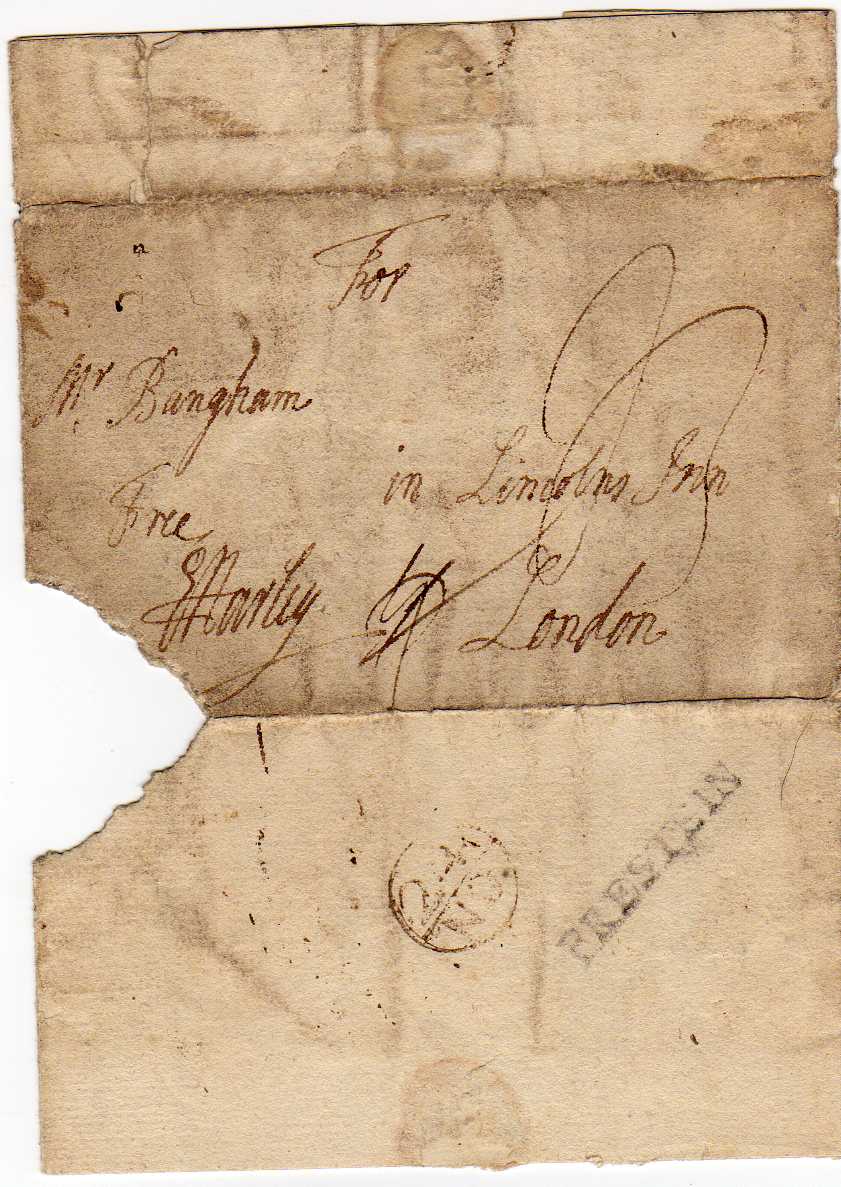 For
Mr Bangham
in Lincolns Inn
Free
EHarley
London
NO
PRESTEIN